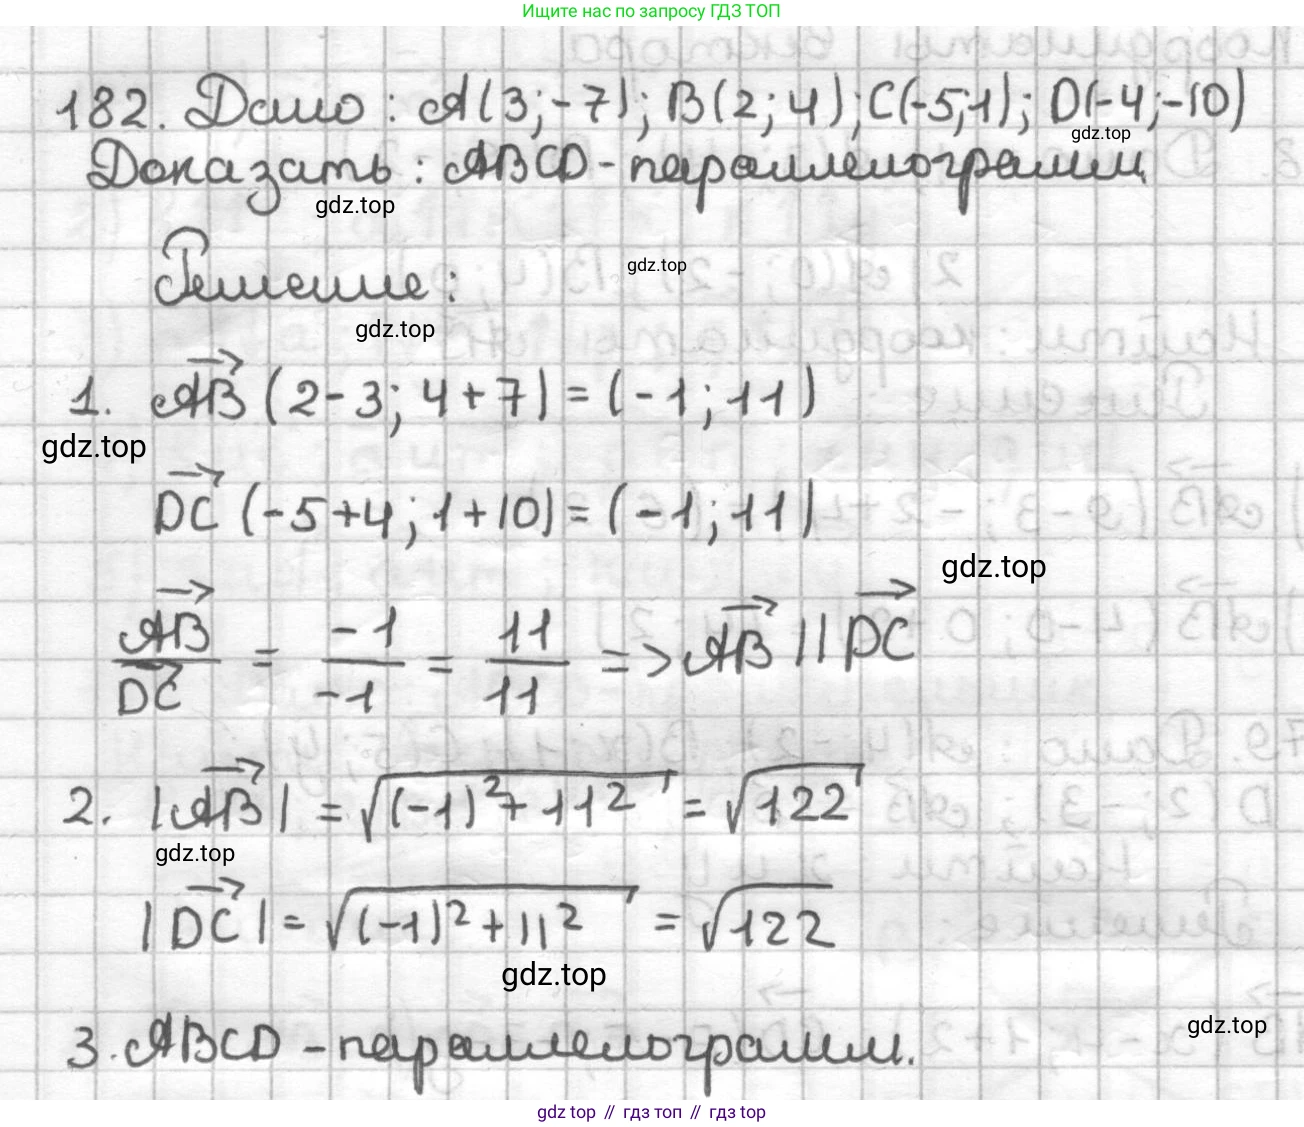 Ищите нас по запросу ГДЗ ТОП
182. Дано: A(3;-7); B(2;4); C(-5;1); D(-4;-10)
gdz.top
Доказать: ABCD - параллелограмм
gdz.top
gdz.top
Решение:
gdz.top
1. AB→ (2-3; 4+7) = (-1; 11)
gdz.top
DC→ (-5+4; 1+10) = (-1; 11)
gdz.top
AB→/DC→ = -1/-1 = 11/11 => AB→ || DC→
2. |AB→| = √((-1)²+11²) = √122
gdz.top
|DC→| = √((-1)²+11²) = √122
gdz.top
gdz.top
3. ABCD - параллелограмм.
gdz top // гдз топ // гдз top